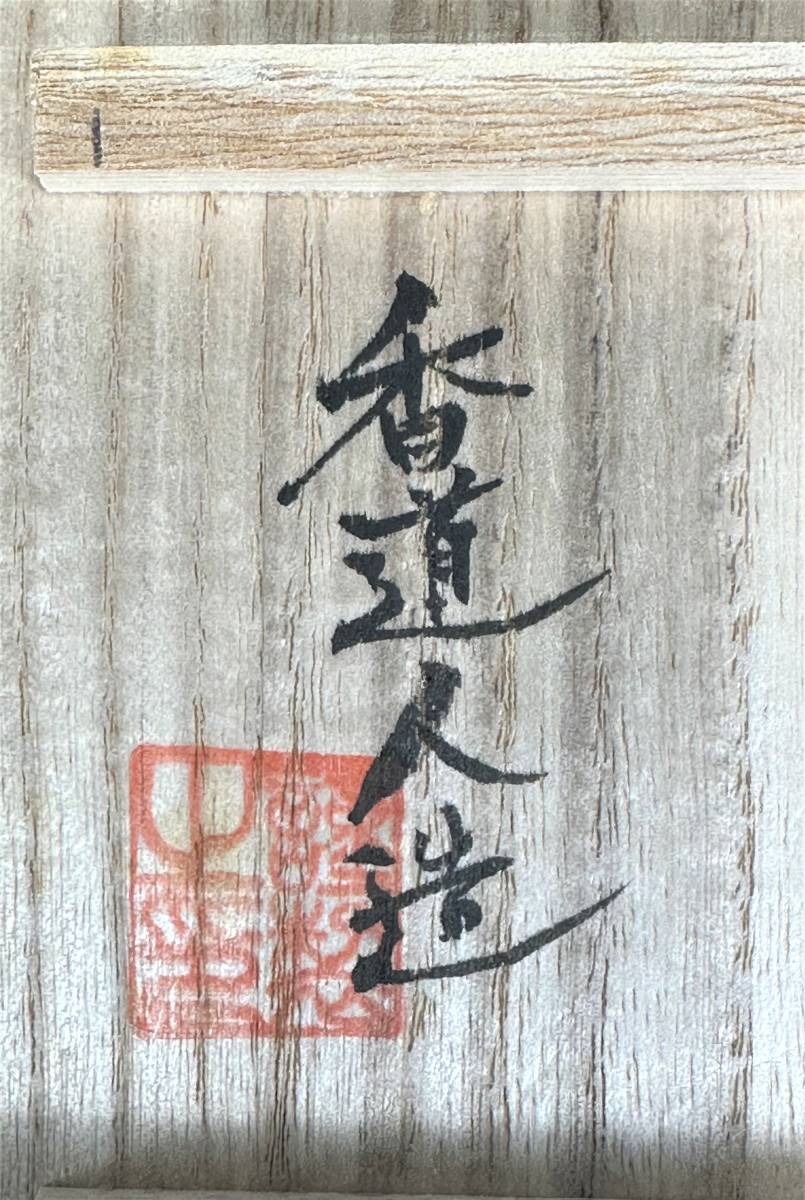 香道人造